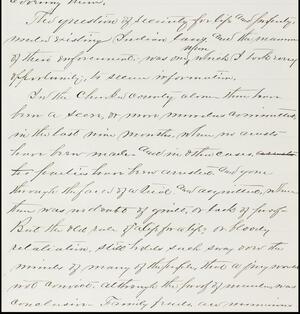 The question of security for life and property,
under existing Indian laws, and the manner
of their enforcement, was one upon which I took every
opportunity, to secure information.
In the Cherokee county alone there have
been a score, or more murders committed,
in the last nine months, when no arrests
have been made. And in other cases,
parties have been arrested and gone
through the farce of a trial and acquitted, when
there was no doubt of guilt, or lack of proof.
But the old rule of a life for a life, or bloody
retaliation, still holds such sway over the
minds of many of the people, that a jury would
not convict, although the proof of murder was
conclusive. Family feuds are numerous